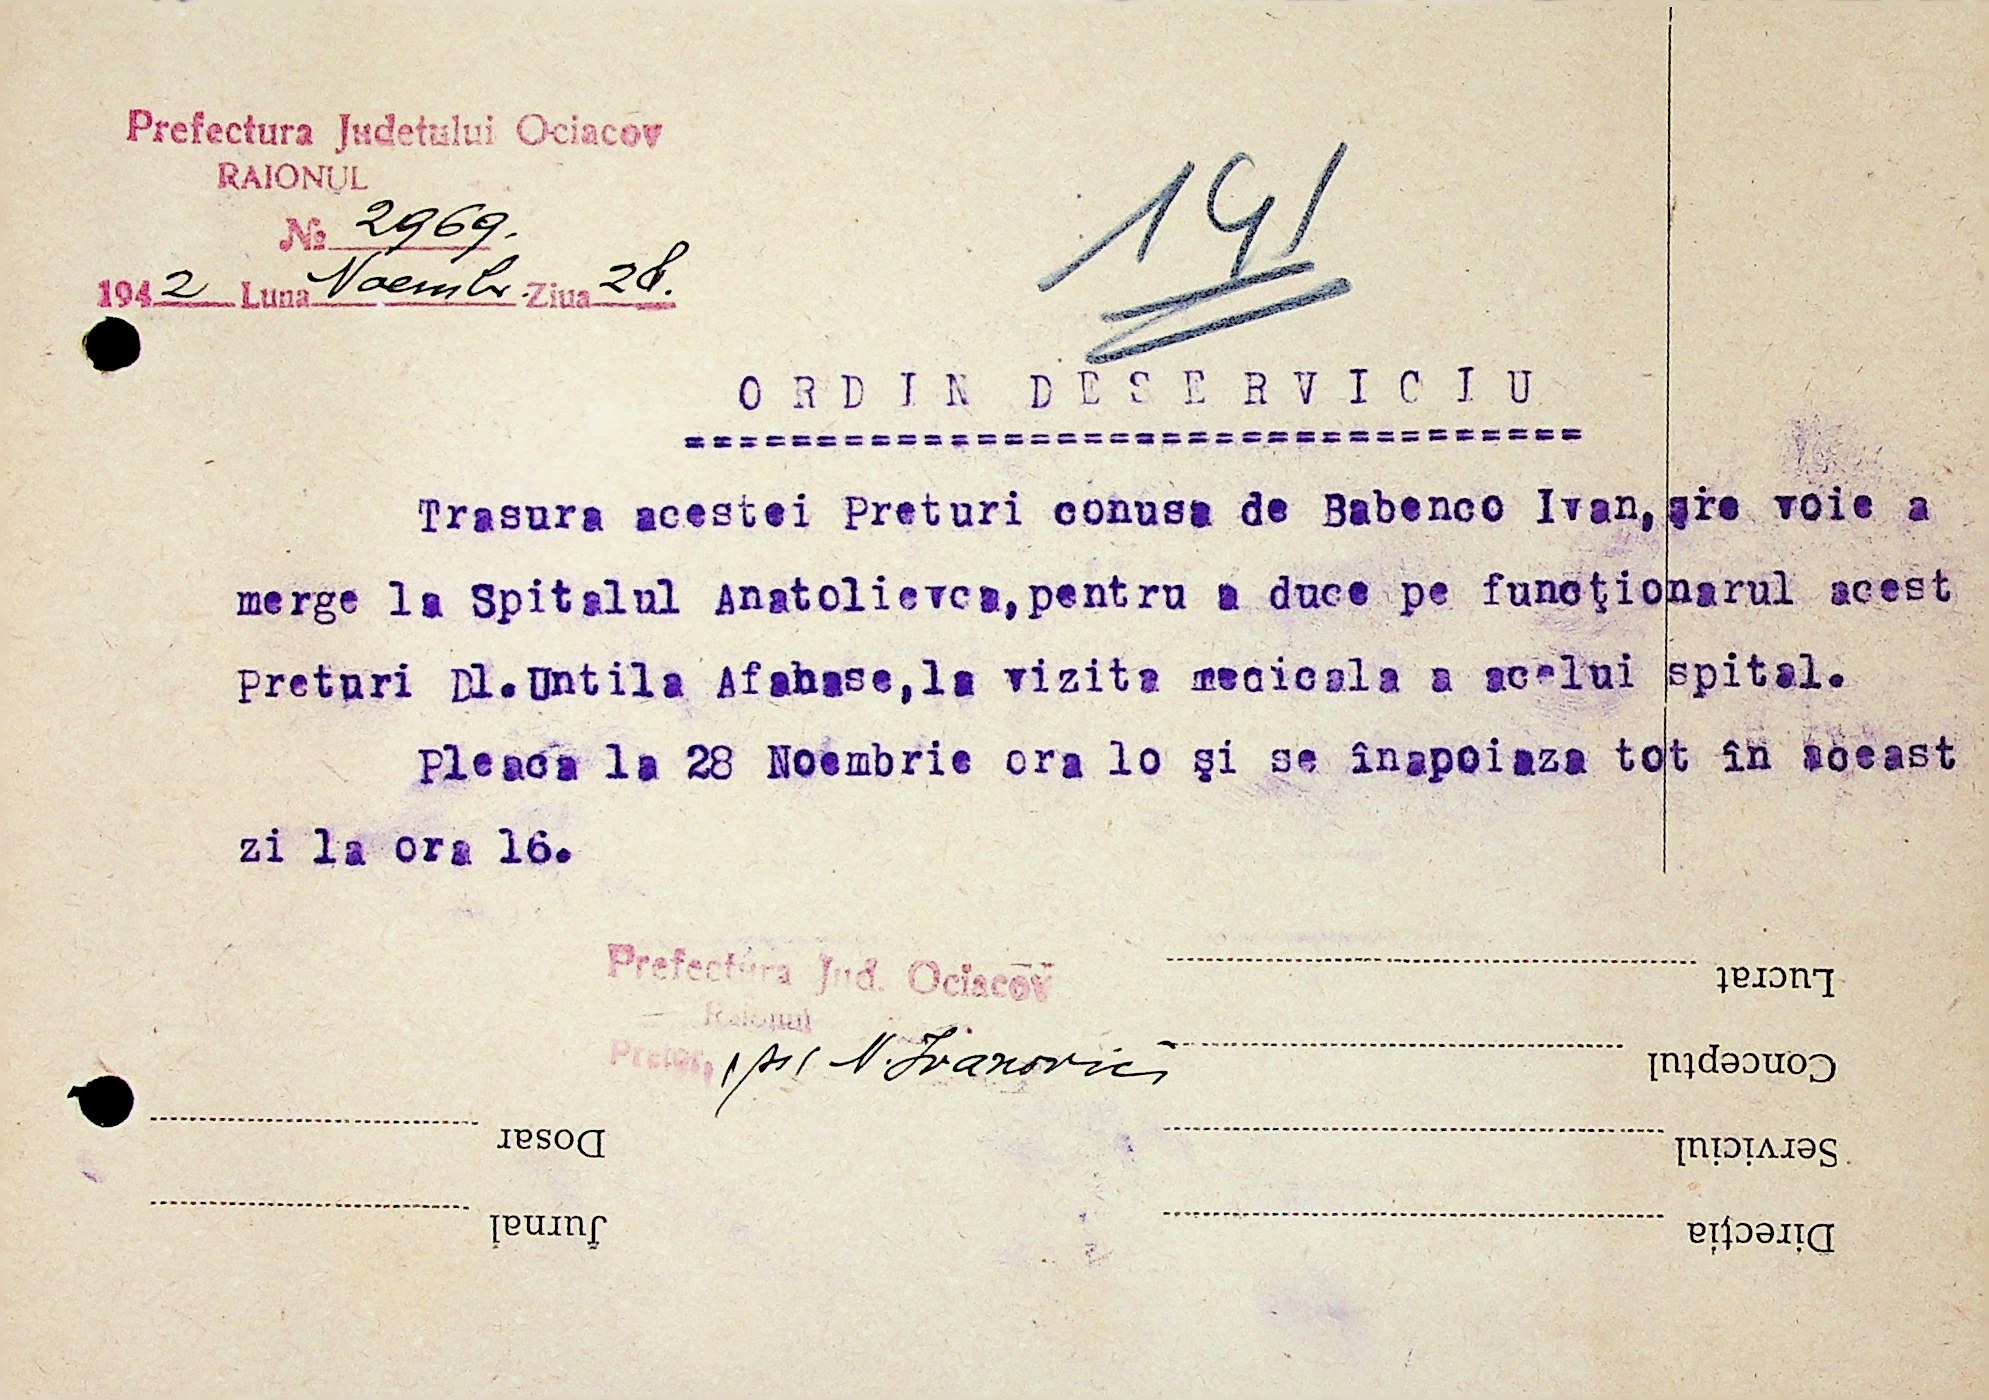 Prefectura Judetului Ociacov
RAIONUL
№ 2969.
1942 Luna Noembr. Ziua 28.
191
ORDIN DE SERVICIU
==================================
Trasura acestei Preturi conusa de Babenco Ivan, are voie a
merge la Spitalul Anatolievca, pentru a duce pe funcţionarul acest
Preturi Dl. Untila Afanase, la vizita medicala a acelui spital.
Pleaca la 28 Noembrie ora lo şi se înapoiaza tot în aceast
zi la ora 16.
Prefectura Jud. Ociacov
Raionul
Pretor, N. Ivanovici
Lucrat
Conceptul
Serviciul
Direcţia
Dosar
Jurnal